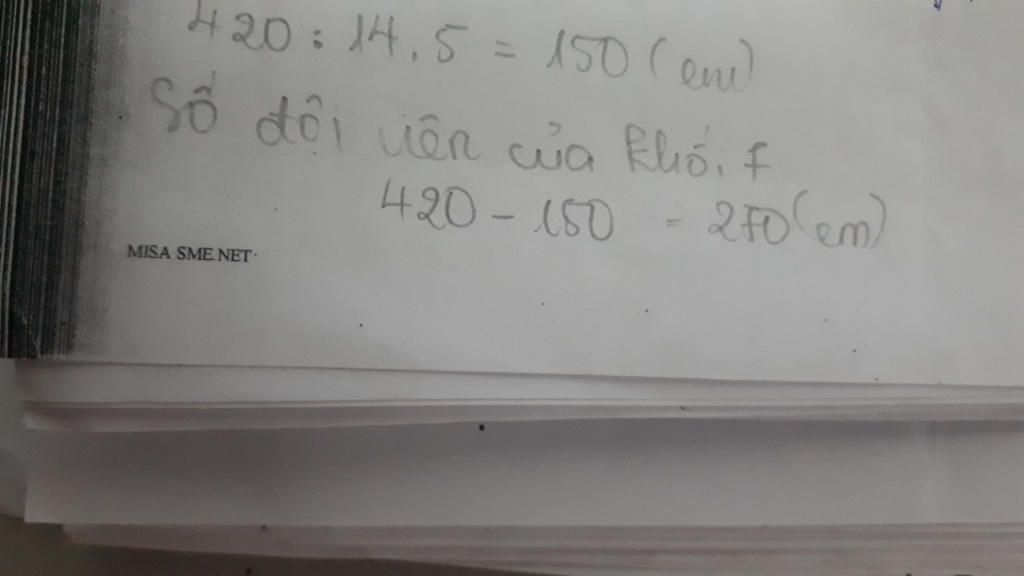 420 : 14 . 5 = 150 (em)
Số đội viên của khối 7
420 - 150 = 270 (em)
MISA SME.NET